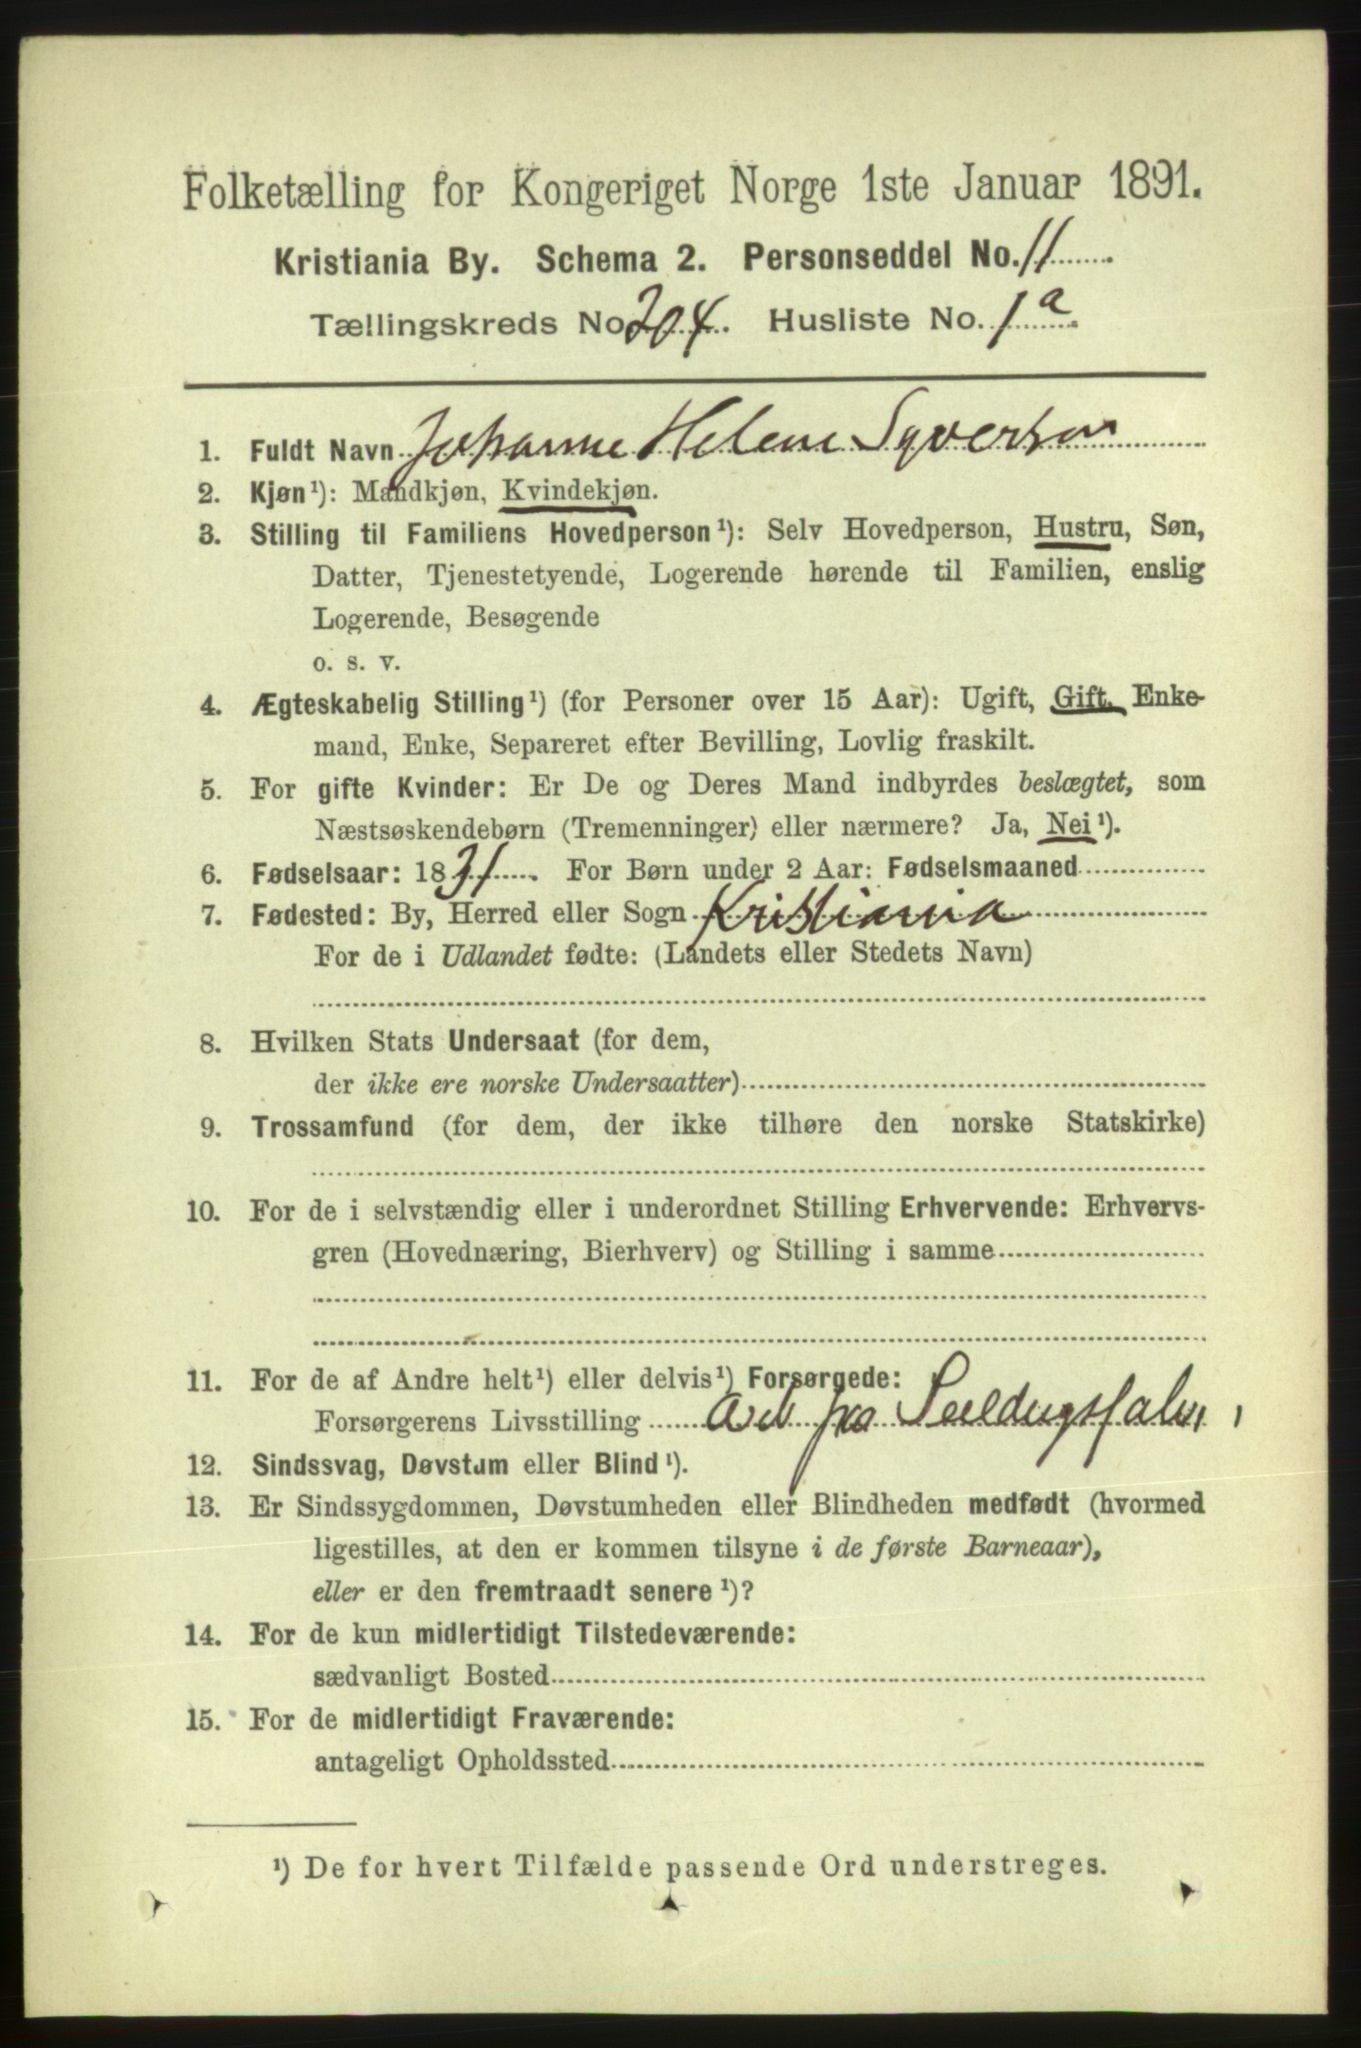 Folketælling for Kongeriget Norge 1ste Januar 1891.
Kristiania By. Schema 2. Personseddel No. 11
Tællingskreds No. 204. Husliste No. 1a
1. Fuldt Navn Johanne Helene Syversen
2. Kjøn¹): Mandkjøn, Kvindekjøn.
3. Stilling til Familiens Hovedperson¹): Selv Hovedperson, Hustru, Søn,
Datter, Tjenestetyende, Logerende hørende til Familien, enslig
Logerende, Besøgende
o. s. v.
4. Ægteskabelig Stilling¹) (for Personer over 15 Aar): Ugift, Gift, Enke-
mand, Enke, Separeret efter Bevilling, Lovlig fraskilt.
5. For gifte Kvinder: Er De og Deres Mand indbyrdes beslægtet, som
Næstsøskendebørn (Tremenninger) eller nærmere? Ja, Nei¹).
6. Fødselsaar: 1831. For Børn under 2 Aar: Fødselsmaaned
7. Fødested: By, Herred eller Sogn Kristiania
For de i Udlandet fødte: (Landets eller Stedets Navn)
8. Hvilken Stats Undersaat (for dem,
der ikke ere norske Undersaatter)
9. Trossamfund (for dem, der ikke tilhøre den norske Statskirke)
10. For de i selvstændig eller i underordnet Stilling Erhvervende: Erhvervs-
gren (Hovednæring, Bierhverv) og Stilling i samme
11. For de af Andre helt¹) eller delvis¹) Forsørgede:
Forsørgerens Livsstilling
12. Sindssvag, Døvstum eller Blind¹).
13. Er Sindssygdommen, Døvstumheden eller Blindheden medfødt (hvormed
ligestilles, at den er kommen tilsyne i de første Barneaar),
eller er den fremtraadt senere¹)?
14. For de kun midlertidigt Tilstedeværende:
sædvanligt Bosted
15. For de midlertidigt Fraværende:
antageligt Opholdssted
¹) De for hvert Tilfælde passende Ord understreges.